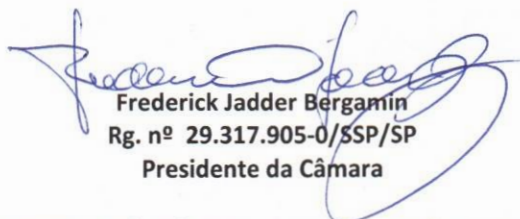 Frederick Jadder Bergamin
Rg. nº 29.317.905-0/SSP/SP
Presidente da Câmara